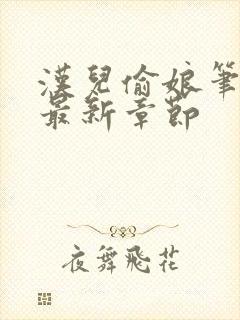 漢兒偷娘筆
最新章節
夜舞飛花